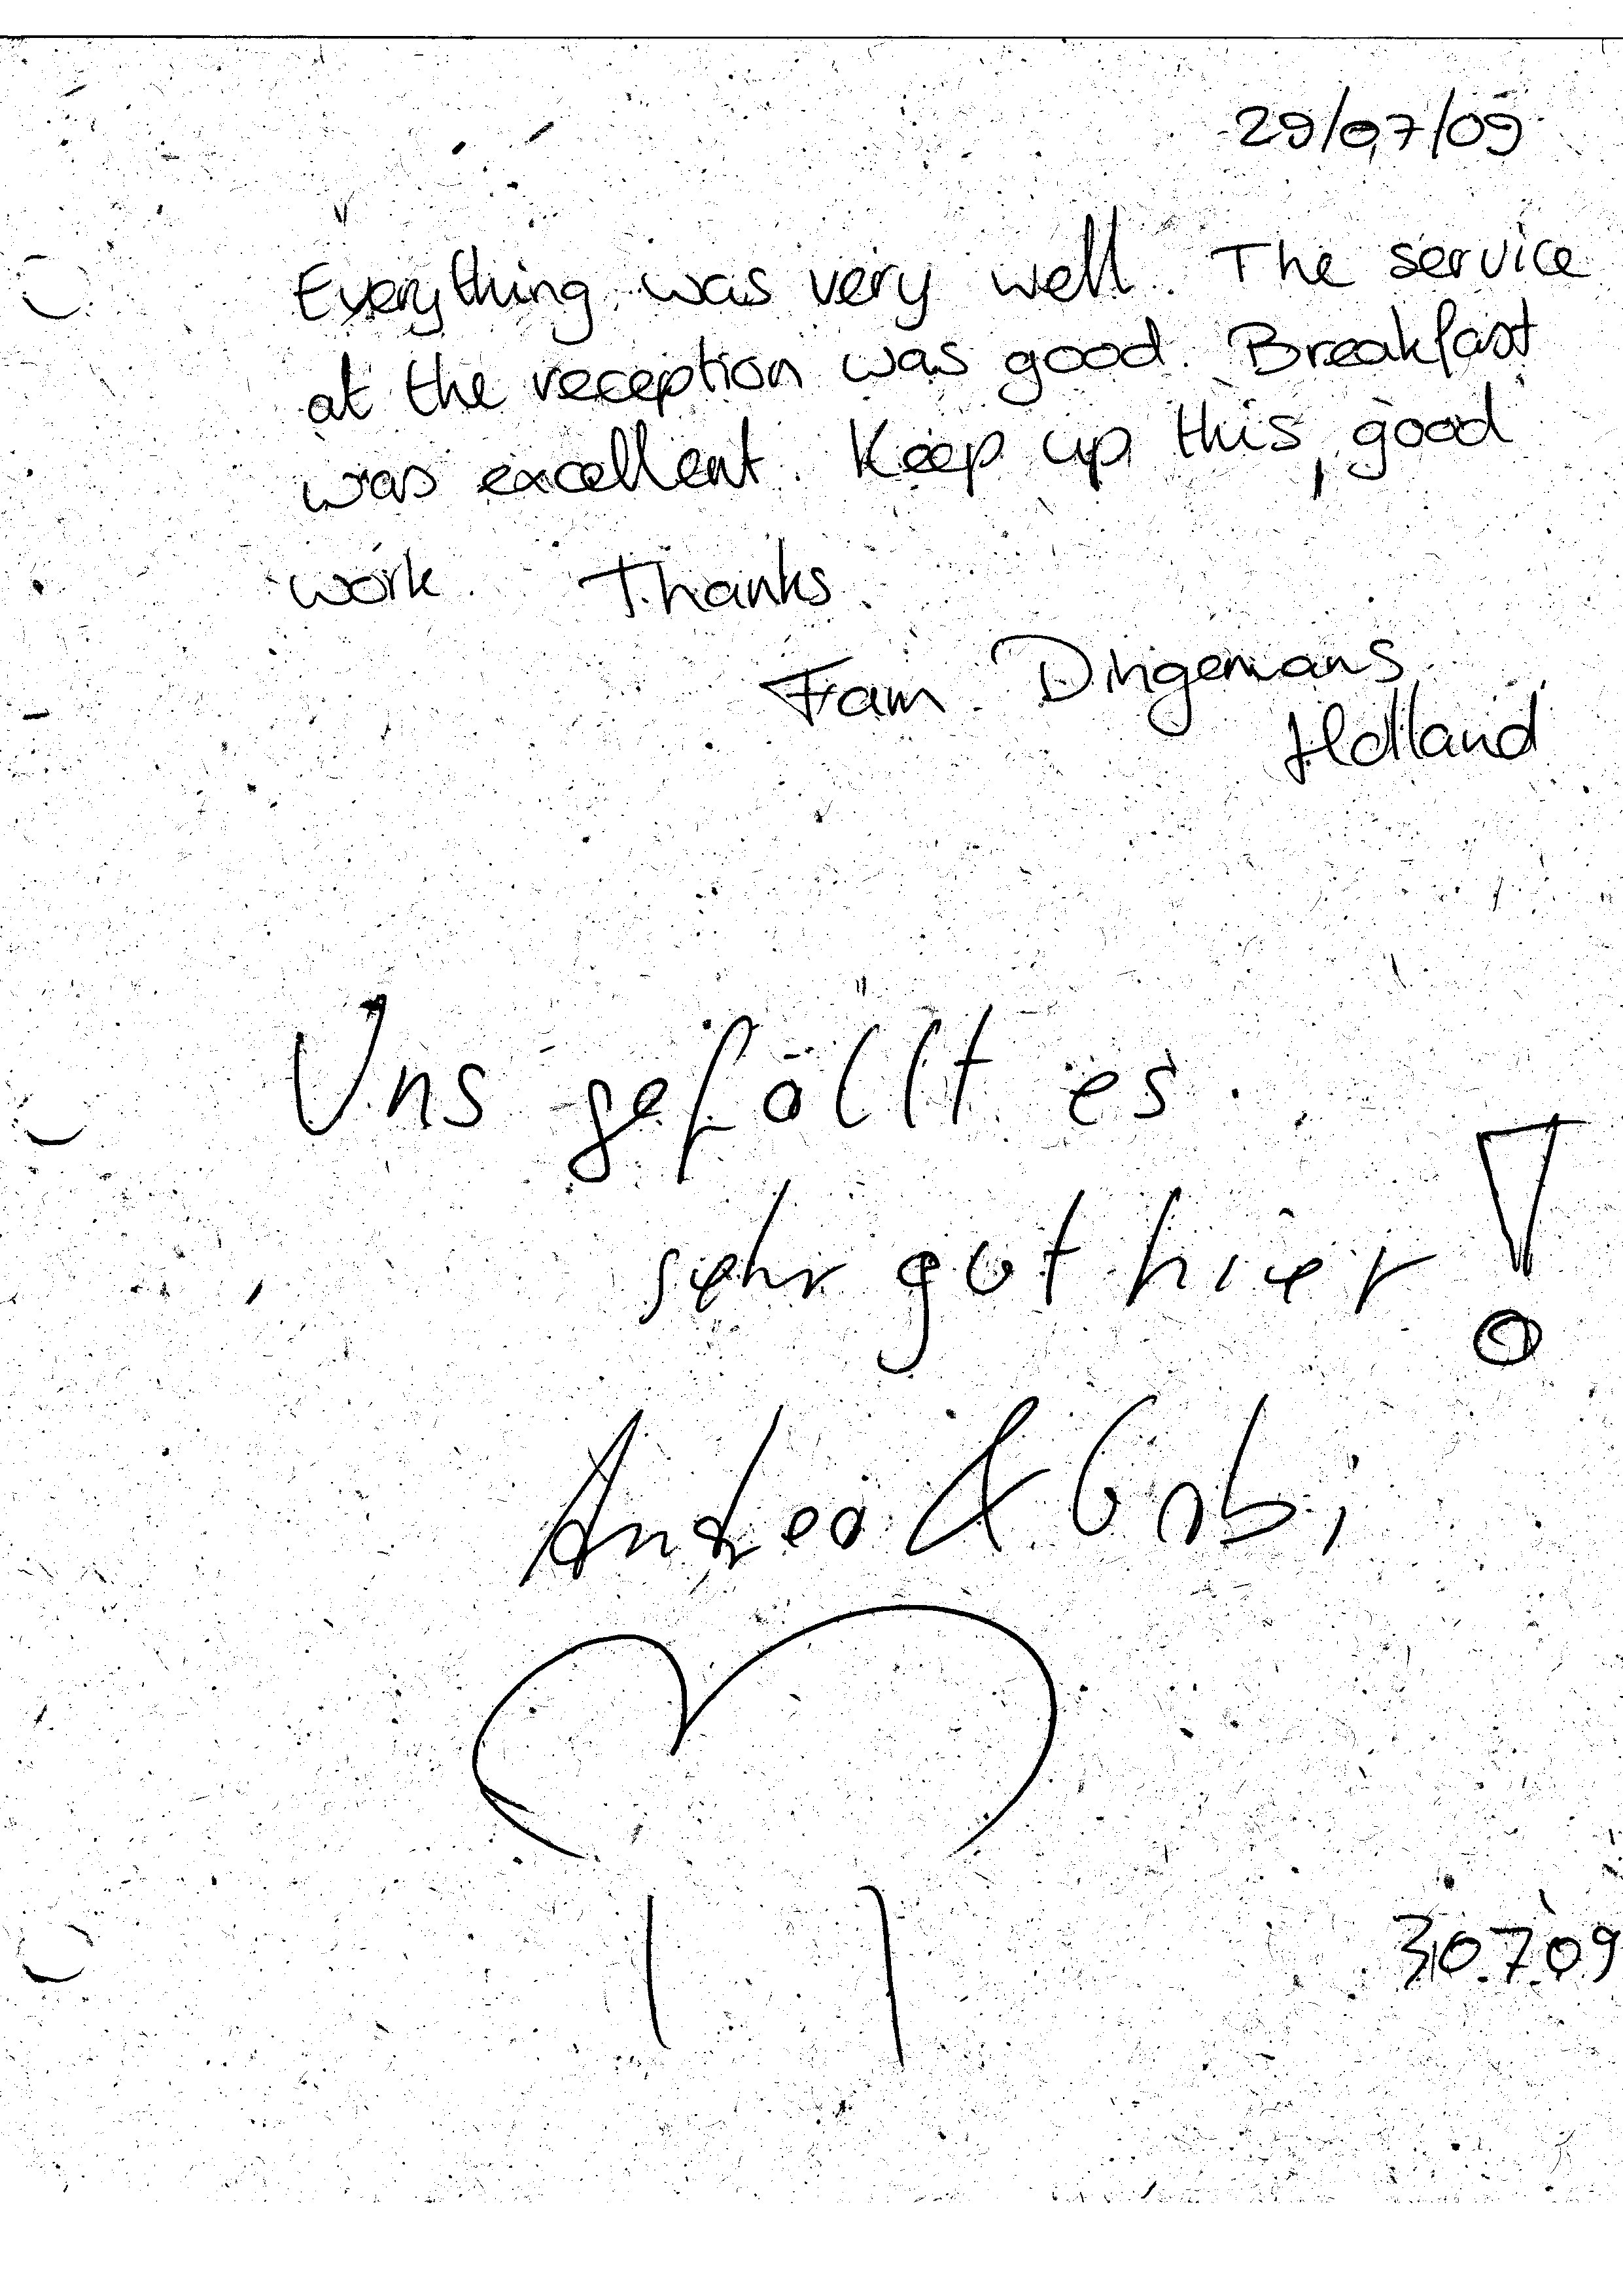 29/07/09
Everything was very well. The service
at the reception was good. Breakfast
was excellent. Keep up this good
work. Thanks.
Fam. Dingemans
Holland
Uns gefällt es
sehr gut hier!
Andrea & Gabi
30.7.09